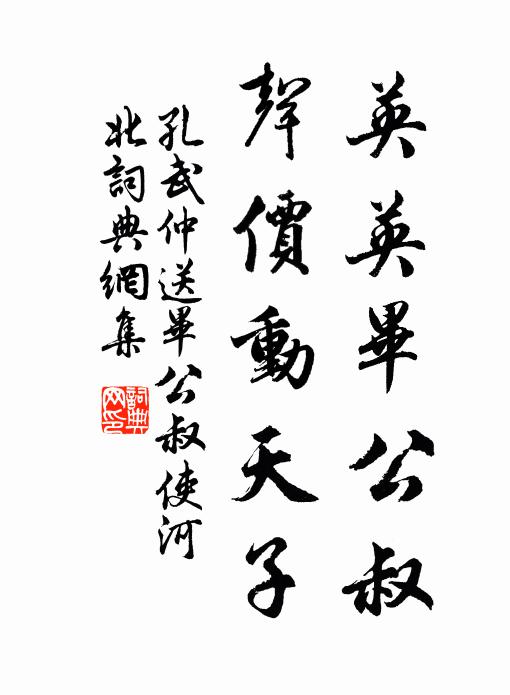 英英畢公叔
聲價動天子
孔武仲送畢公叔使河
北詞典網集
詞典
网印